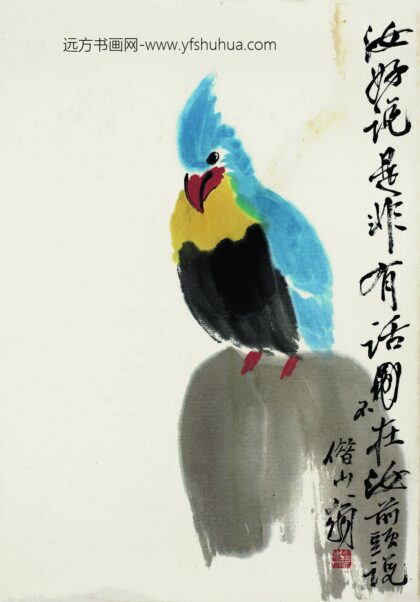 远方书画网-www.yfshuhua.com
汝好说是非有话不在汝前頭说
借山翁